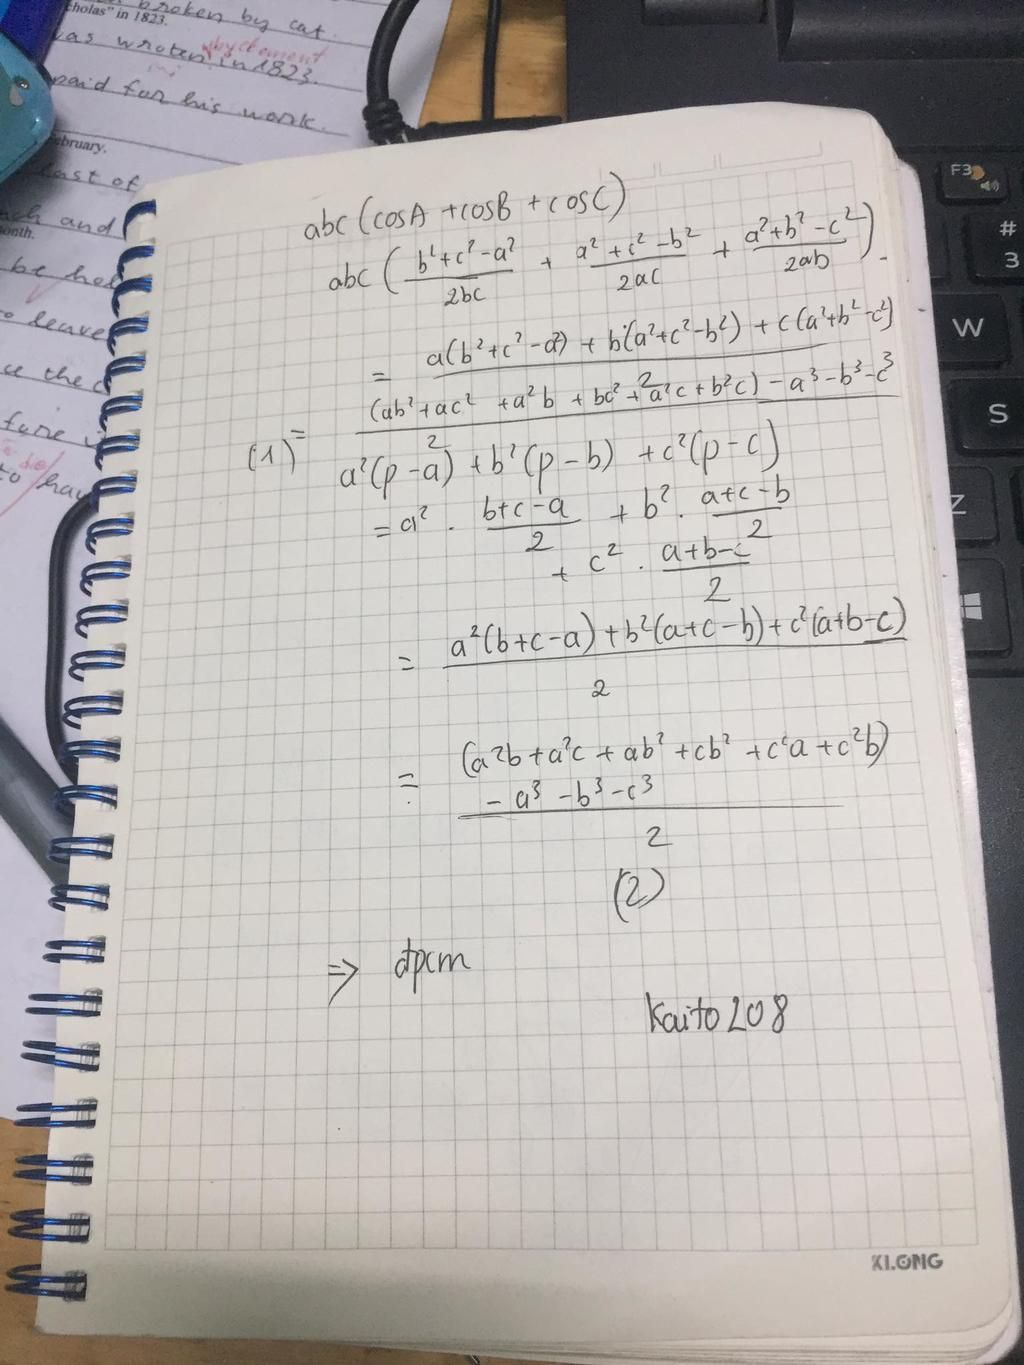 broken by cat.
cholas" in 1823.
was wroten in 1823.
by clement
paid for his work.
ebruary.
last of
and
onth.
be
to leave
the
to
F3
#
3
W
S
Z
abc (cosA + cosB + cosC)
abc ( (b²+c²-a²)/2bc + (a²+c²-b²)/2ac + (a²+b²-c²)/2ab ).
= (a(b²+c²-a²) + b(a²+c²-b²) + c(a²+b²-c²))/2
(1) = ((ab²+ac²+a²b+bc²+a²c+b²c) - a³-b³-c³)/2
a²(p-a) + b²(p-b) + c²(p-c)
= a² . (b+c-a)/2 + b² . (a+c-b)/2
+ c² . (a+b-c)/2
= (a²(b+c-a)+b²(a+c-b)+c²(a+b-c))/2
= ((a²b+a²c+ab²+cb²+c²a+c²b)
-a³-b³-c³)/2
(2)
⇒ đpcm
Kaito208
KLONG